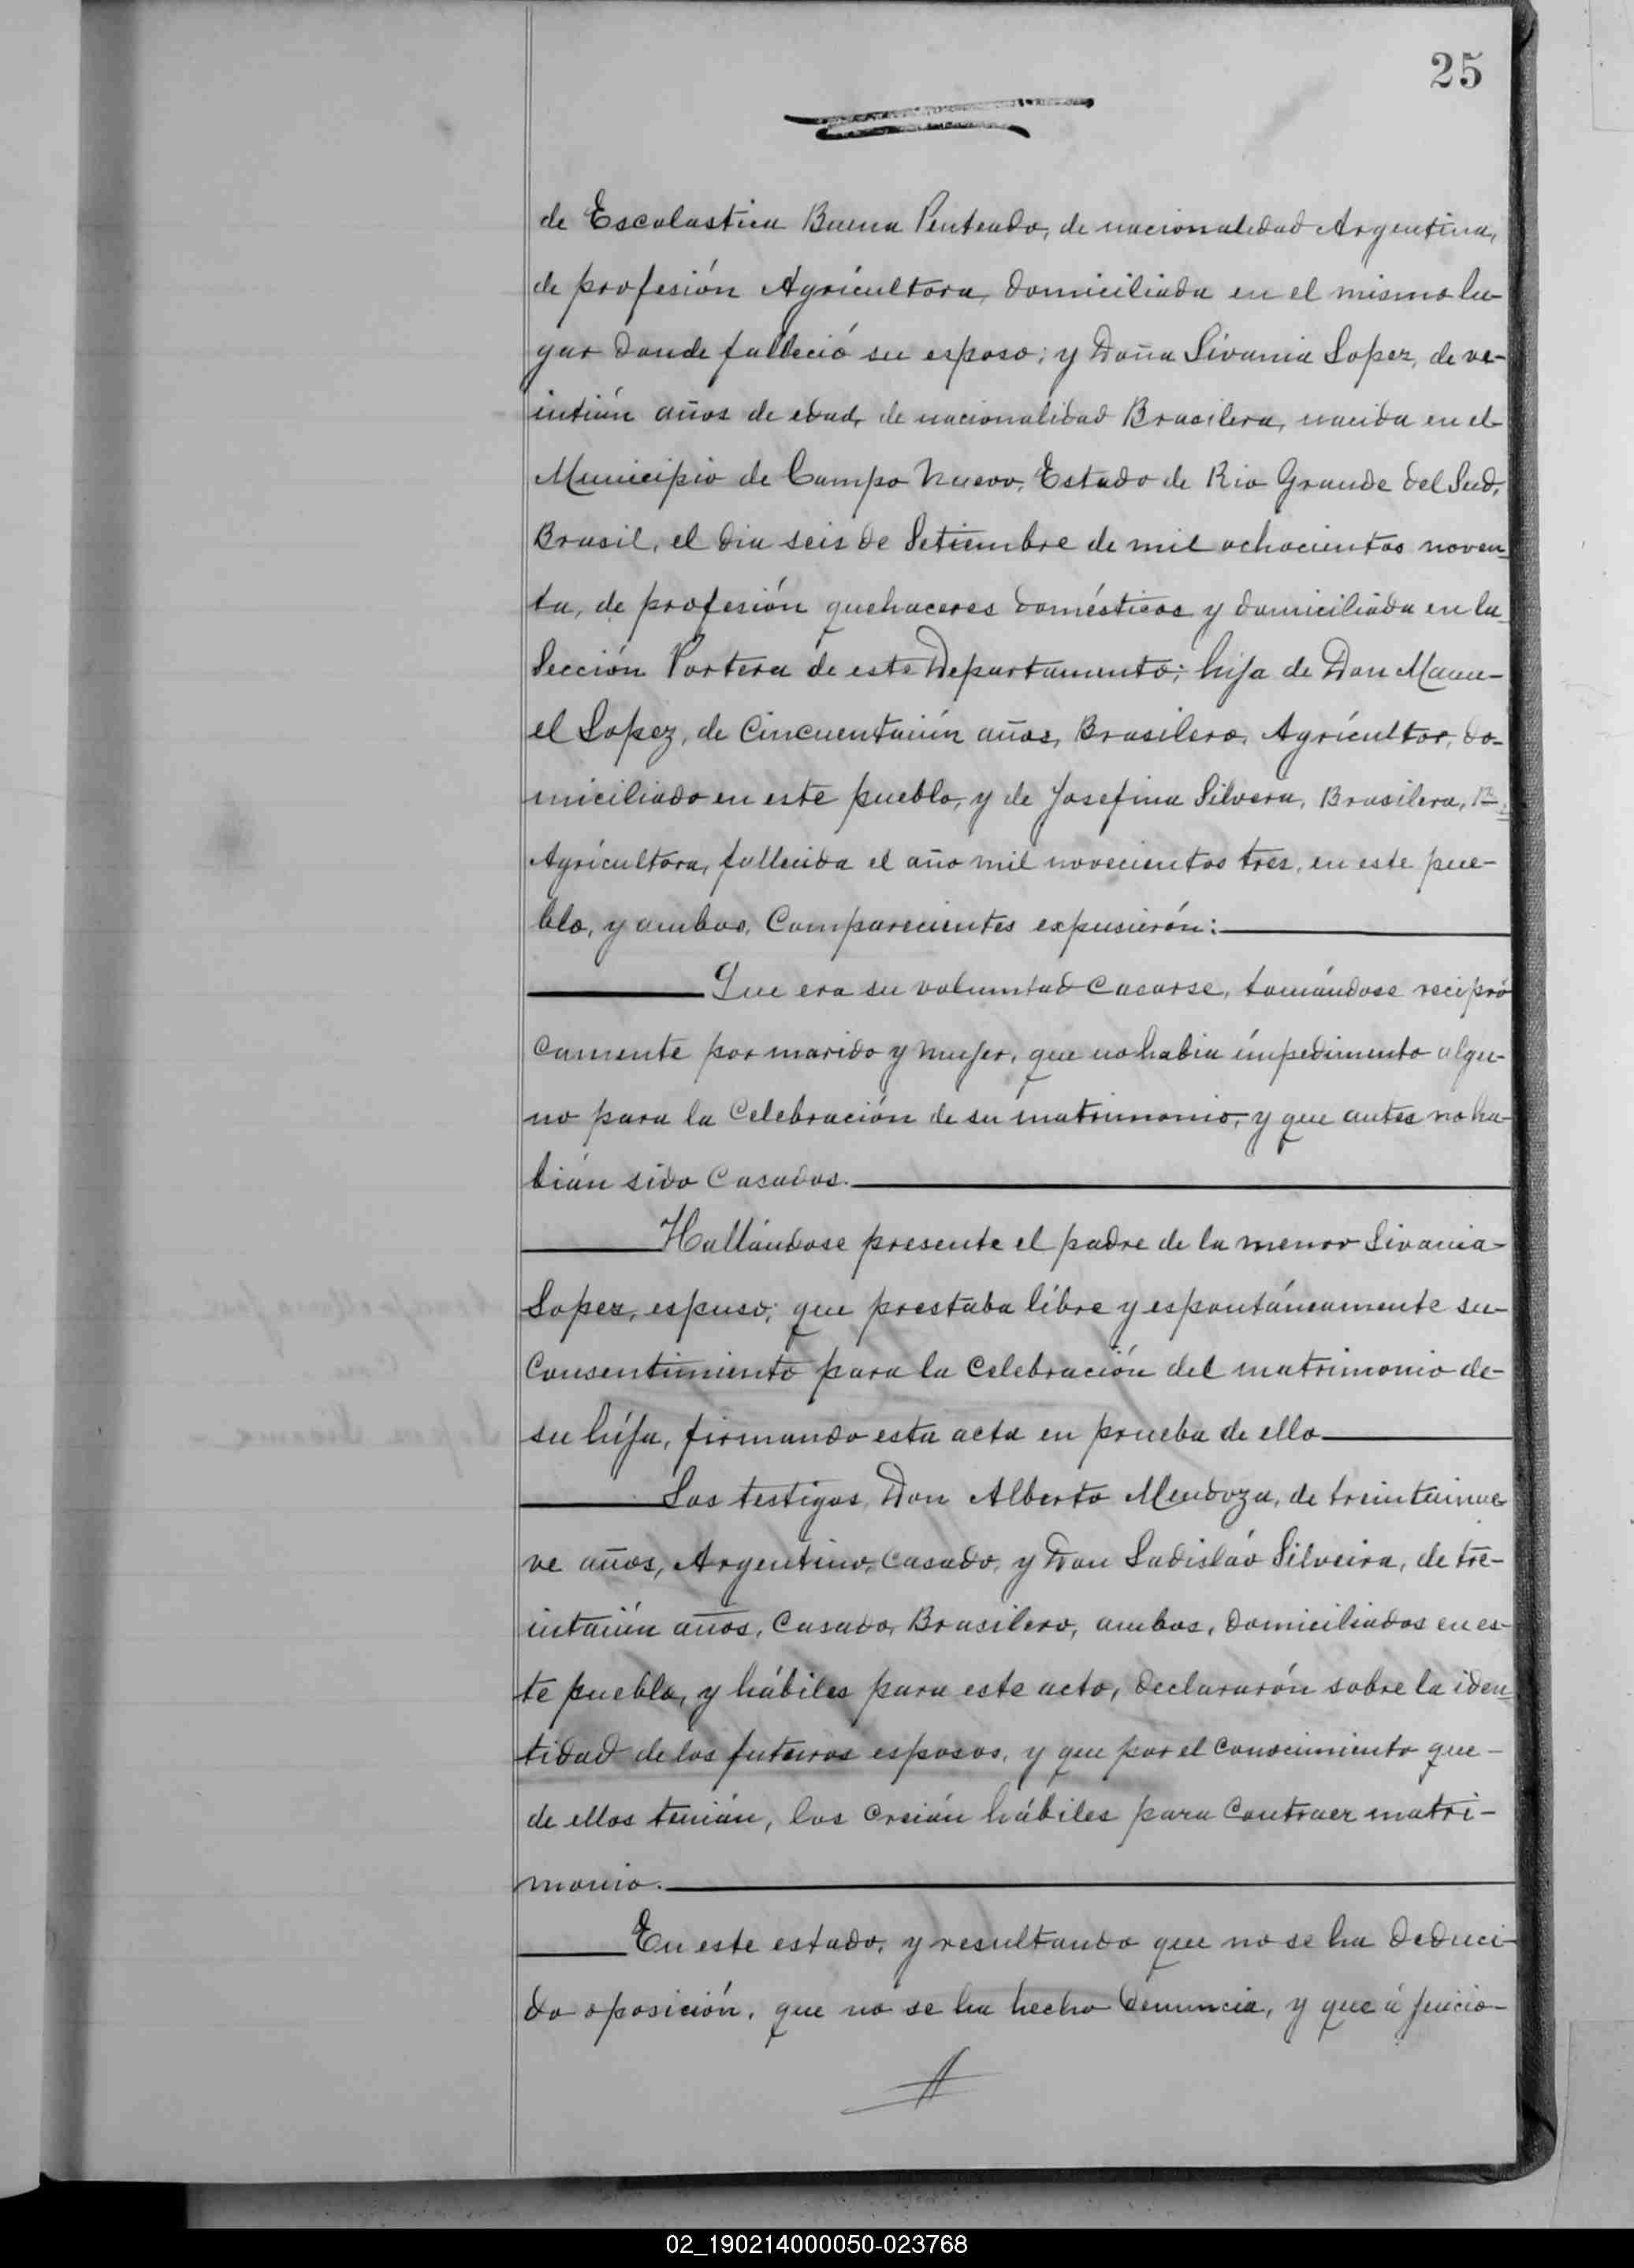 25
de Escolastica Buena Penteado, de nacionalidad Argentina,
de profesión Agrícultora, domiciliada en el mismo lu-
gar donde falleció su esposo; y Doña Sivania Lopez, de ve-
intiún años de edad, de nacionalidad Brasilera, nacida en el
Municipio de Campo Nuevo, Estado de Rio Grande del Sud,
Brasil, el dia seis de Setiembre de mil ochocientos noven
ta, de profesión quehaceres domésticos y domiciliada en la
Sección Portera de este Departamento; hija de Don Manu-
el Lopez, de Cincuentaiún años, Brasilero, Agrícultor, do-
miciliado en este pueblo, y de Josefina Silvera, Brasilera,
Agrícultora, fallecida el año mil novecientos tres, en este pue-
blo, y ambos, Comparecientes expusierón:
Que era su voluntad Casarse, tomándose recipró
camente por marido y mujer, que no habia ímpedimento algu-
no para la Celebración de su matrimonio, y que antes no ha-
bián sido Casados.
Hallándose presente el padre de la menor Sivania
Lopez, espuso; que prestaba líbre y espontáneamente su
Consentimiento para la Celebración del matrimonio de-
su híja, firmando esta acta en prueba de ello
Los testigos, Don Alberto Mendoza, de treintainue
ve años, Argentino, Casado, y Don Ladisláo Silveira, de tre-
intaiún años, Casado, Brasilero, ambos, domiciliados en es-
te pueblo, y hábiles para este acto, declararón sobre la iden
tidad de los futuros esposos, y que por el Conocimiento que-
de ellos tenián, los Creián hábiles para Contraer matri-
monio.
En este estado, y resultando que no se ha deduci-
do oposición, que no se ha hecho denuncia, y que á juicio-
02_190214000050-023768